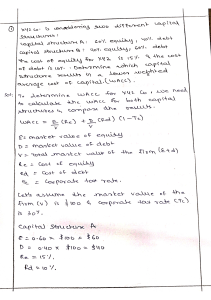 ① XYZ Co is considering two different capital
structures:
capital structure A: 60% equity, 40% debt
capital structure B: 40% equity, 60% debt
The cost of equity for XYZ is 15% & the cost
of debt is 10%. Determine which capital
structure results in a lower weighted
average cost of capital (WACC).
Sol: To determine WACC for XYZ Co, we need
to calculate the WACC for both capital
structures & compare the results.
WACC = E/V (Re) + D/V (Rd) (1-Tc)
E = market value of equity
D = market value of debt
V = Total market value of the firm (E+D)
Re = Cost of equity
Rd = Cost of debt
Tc = Corporate tax rate.
Let's assume the market value of the
firm (V) is $100 & corporate tax rate (Tc)
is 30%.
Capital Structure A
E = 0.60 × $100 = $60
D = 0.40 × $100 = $40
Re = 15%
Rd = 10%.